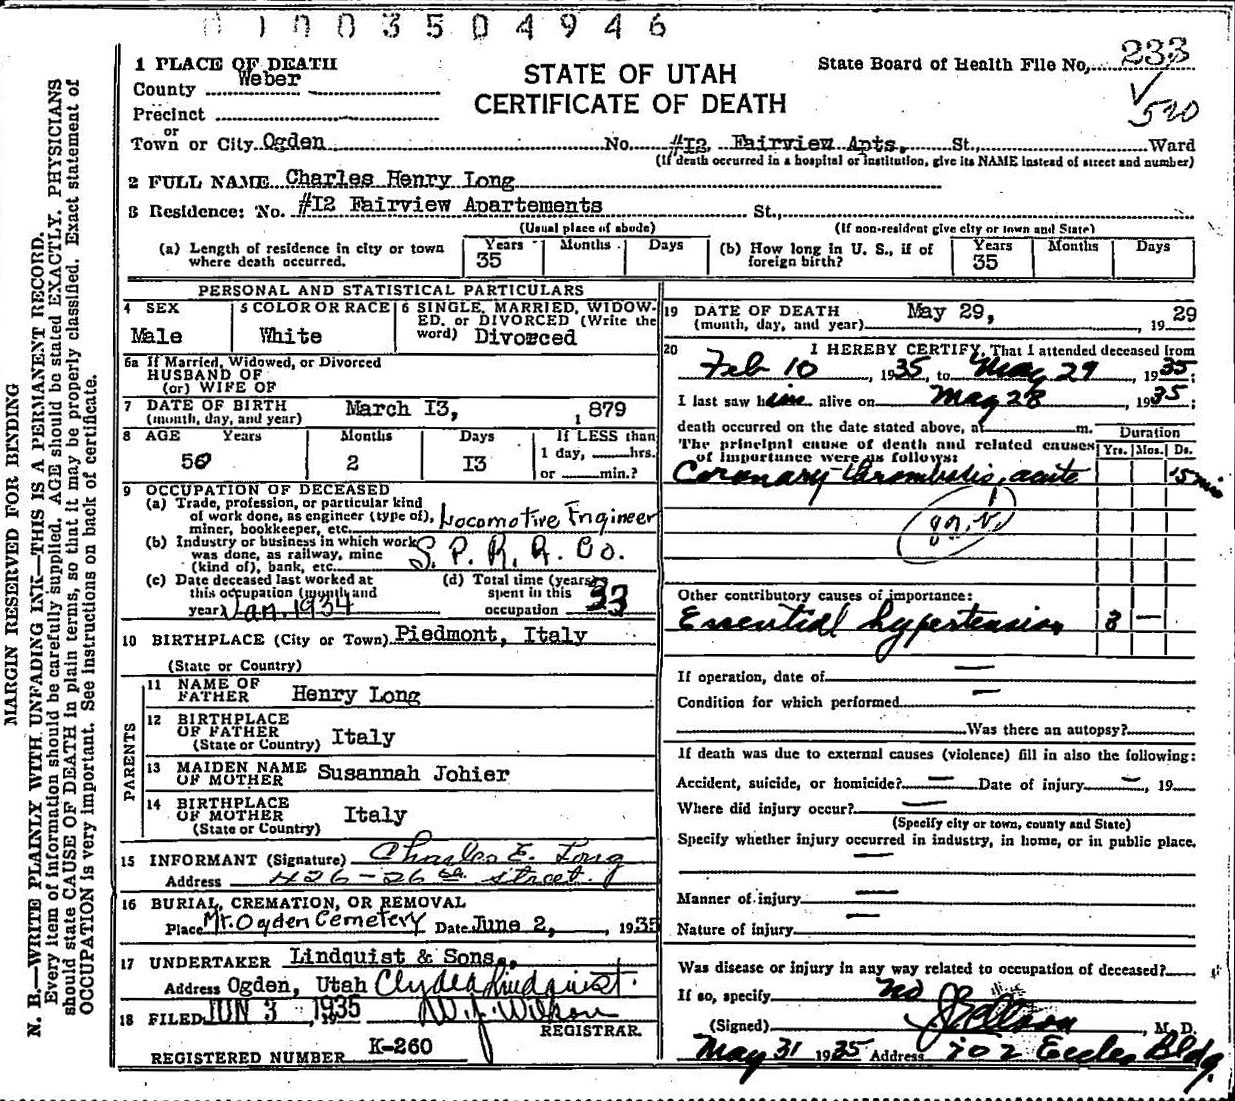 0 1 0 0 3 5 0 4 9 4 6
MARGIN RESERVED FOR BINDING
N. B.—WRITE PLAINLY WITH UNFADING INK—THIS IS A PERMANENT RECORD.
Every item of information should be carefully supplied. AGE should be stated EXACTLY. PHYSICIANS
should state CAUSE OF DEATH in plain terms, so that it may be properly classified. Exact statement of
OCCUPATION is very important. See instructions on back of certificate.
1 PLACE OF DEATH
County Weber
Precinct
or
Town or City Ogden No. #I2, Fairview Apts, St., Ward
STATE OF UTAH
CERTIFICATE OF DEATH
State Board of Health File No. 233
520
(If death occurred in a hospital or institution, give its NAME instead of street and number)
2 FULL NAME Charles Henry Long
3 Residence: No. #I2 Fairview Apartements St.,
(Usual place of abode) (If non-resident give city or town and State)
(a) Length of residence in city or town where death occurred. Years 35 Months Days
(b) How long in U. S., if of foreign birth? Years 35 Months Days
PERSONAL AND STATISTICAL PARTICULARS
4 SEX Male
5 COLOR OR RACE White
6 SINGLE, MARRIED, WIDOWED, or DIVORCED (Write the word) Divorced
6a If Married, Widowed, or Divorced
HUSBAND OF
(or) WIFE OF
7 DATE OF BIRTH (month, day, and year) March I3, 1 879
8 AGE Years 56 Months 2 Days I3 If LESS than 1 day, hrs. or min.?
9 OCCUPATION OF DECEASED
(a) Trade, profession, or particular kind of work done, as engineer (type of), miner, bookkeeper, etc. Locomotive Engineer
(b) Industry or business in which work was done, as railway, mine (kind of), bank, etc. S. P. R. R. Co.
(c) Date deceased last worked at this occupation (month and year) Jan. 1934
(d) Total time (years) spent in this occupation 33
10 BIRTHPLACE (City or Town) Piedmont, Italy
(State or Country)
PARENTS
11 NAME OF FATHER Henry Long
12 BIRTHPLACE OF FATHER (State or Country) Italy
13 MAIDEN NAME OF MOTHER Susannah Johier
14 BIRTHPLACE OF MOTHER (State or Country) Italy
15 INFORMANT (Signature) Charles E. Long
Address 426-26th street.
16 BURIAL, CREMATION, OR REMOVAL
Place Mt. Ogden Cemetery Date June 2, , 1935
17 UNDERTAKER Lindquist & Sons.,
Address Ogden, Utah Clyde Lindquist.
18 FILED JUN 3 1935 W. J. Wilson
REGISTRAR.
REGISTERED NUMBER K-260
19 DATE OF DEATH (month, day, and year) May 29, , 19 29
20 I HEREBY CERTIFY, That I attended deceased from
Feb 10 , 1935, to May 29 , 1935;
I last saw him alive on May 28 , 1935;
death occurred on the date stated above, at m.
The principal cause of death and related causes of importance were as follows:
Duration
Yrs. Mos. Ds.
Coronary thrombosis, acute 15 min
Other contributory causes of importance:
Essential hypertension 3 —
If operation, date of —
Condition for which performed —
Was there an autopsy?
If death was due to external causes (violence) fill in also the following:
Accident, suicide, or homicide? — Date of injury — , 19
Where did injury occur? —
(Specify city or town, county and State)
Specify whether injury occurred in industry, in home, or in public place.
—
Manner of injury —
Nature of injury —
Was disease or injury in any way related to occupation of deceased?
If so, specify No
(Signed) , M. D.
May 31 1935 Address 702 Eccles Bldg.